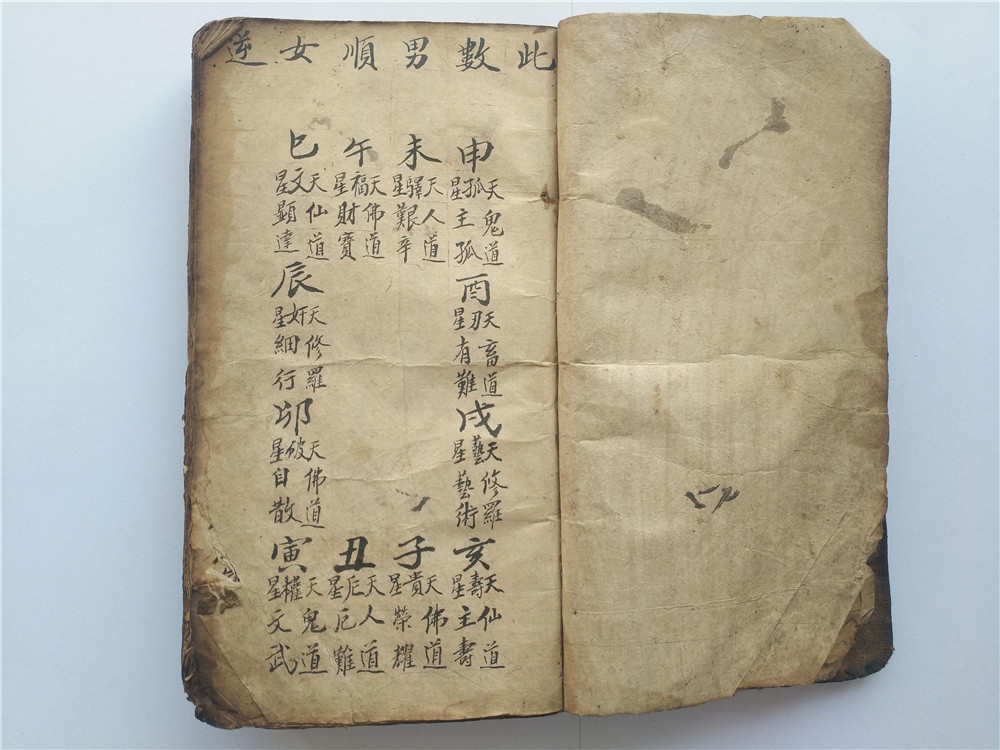 此數男順女逆
申
天孤星
鬼道
主孤
未
天驛星
人道
艱辛
午
天福星
佛道
財寶
巳
天文星
仙道
顯達
辰
天奸星
修羅
細行
卯
天破星
佛道
自散
寅
天權星
鬼道
文武
丑
天厄星
人道
厄難
子
天貴星
佛道
榮耀
亥
天壽星
仙道
主壽
戌
天藝星
修羅
藝術
酉
天刃星
畜道
有難